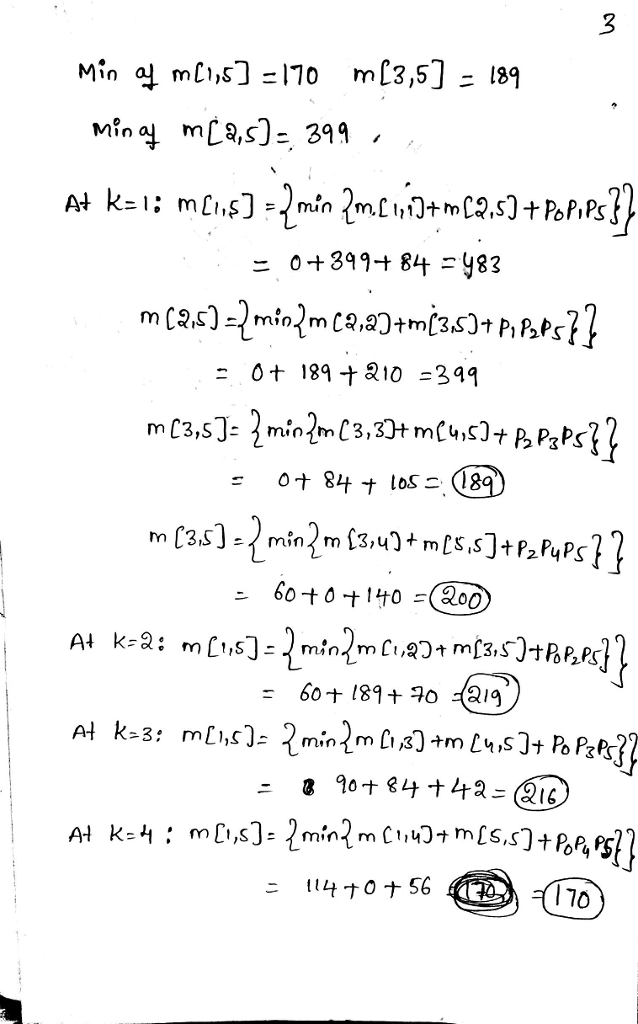 3
Min of m[1,5] = 170 m[3,5] = 189
Min of m[2,5] = 399
At k=1: m[1,5] = {min {m[1,1]+m[2,5]+P0P1P5}}
= 0+399+84 = 483
m[2,5] = {min{m[2,2]+m[3,5]+P1P2P5}}
= 0+ 189 + 210 = 399
m[3,5] = {min{m[3,3]+m[4,5]+P2P3P5}}
= 0+ 84 + 105 = 189
m[3,5] = {min{m[3,4]+m[5,5]+P2P4P5}}
= 60+0+140 = 200
At k=2: m[1,5] = {min{m[1,2]+m[3,5]+P0P2P5}}
= 60+ 189+ 70 = 219
At k=3: m[1,5] = {min{m[1,3]+m[4,5]+P0P3P5}}
= 90+ 84 +42 = 216
At k=4: m[1,5] = {min{m[1,4]+m[5,5]+P0P4P5}}
= 114+0+56 = 170